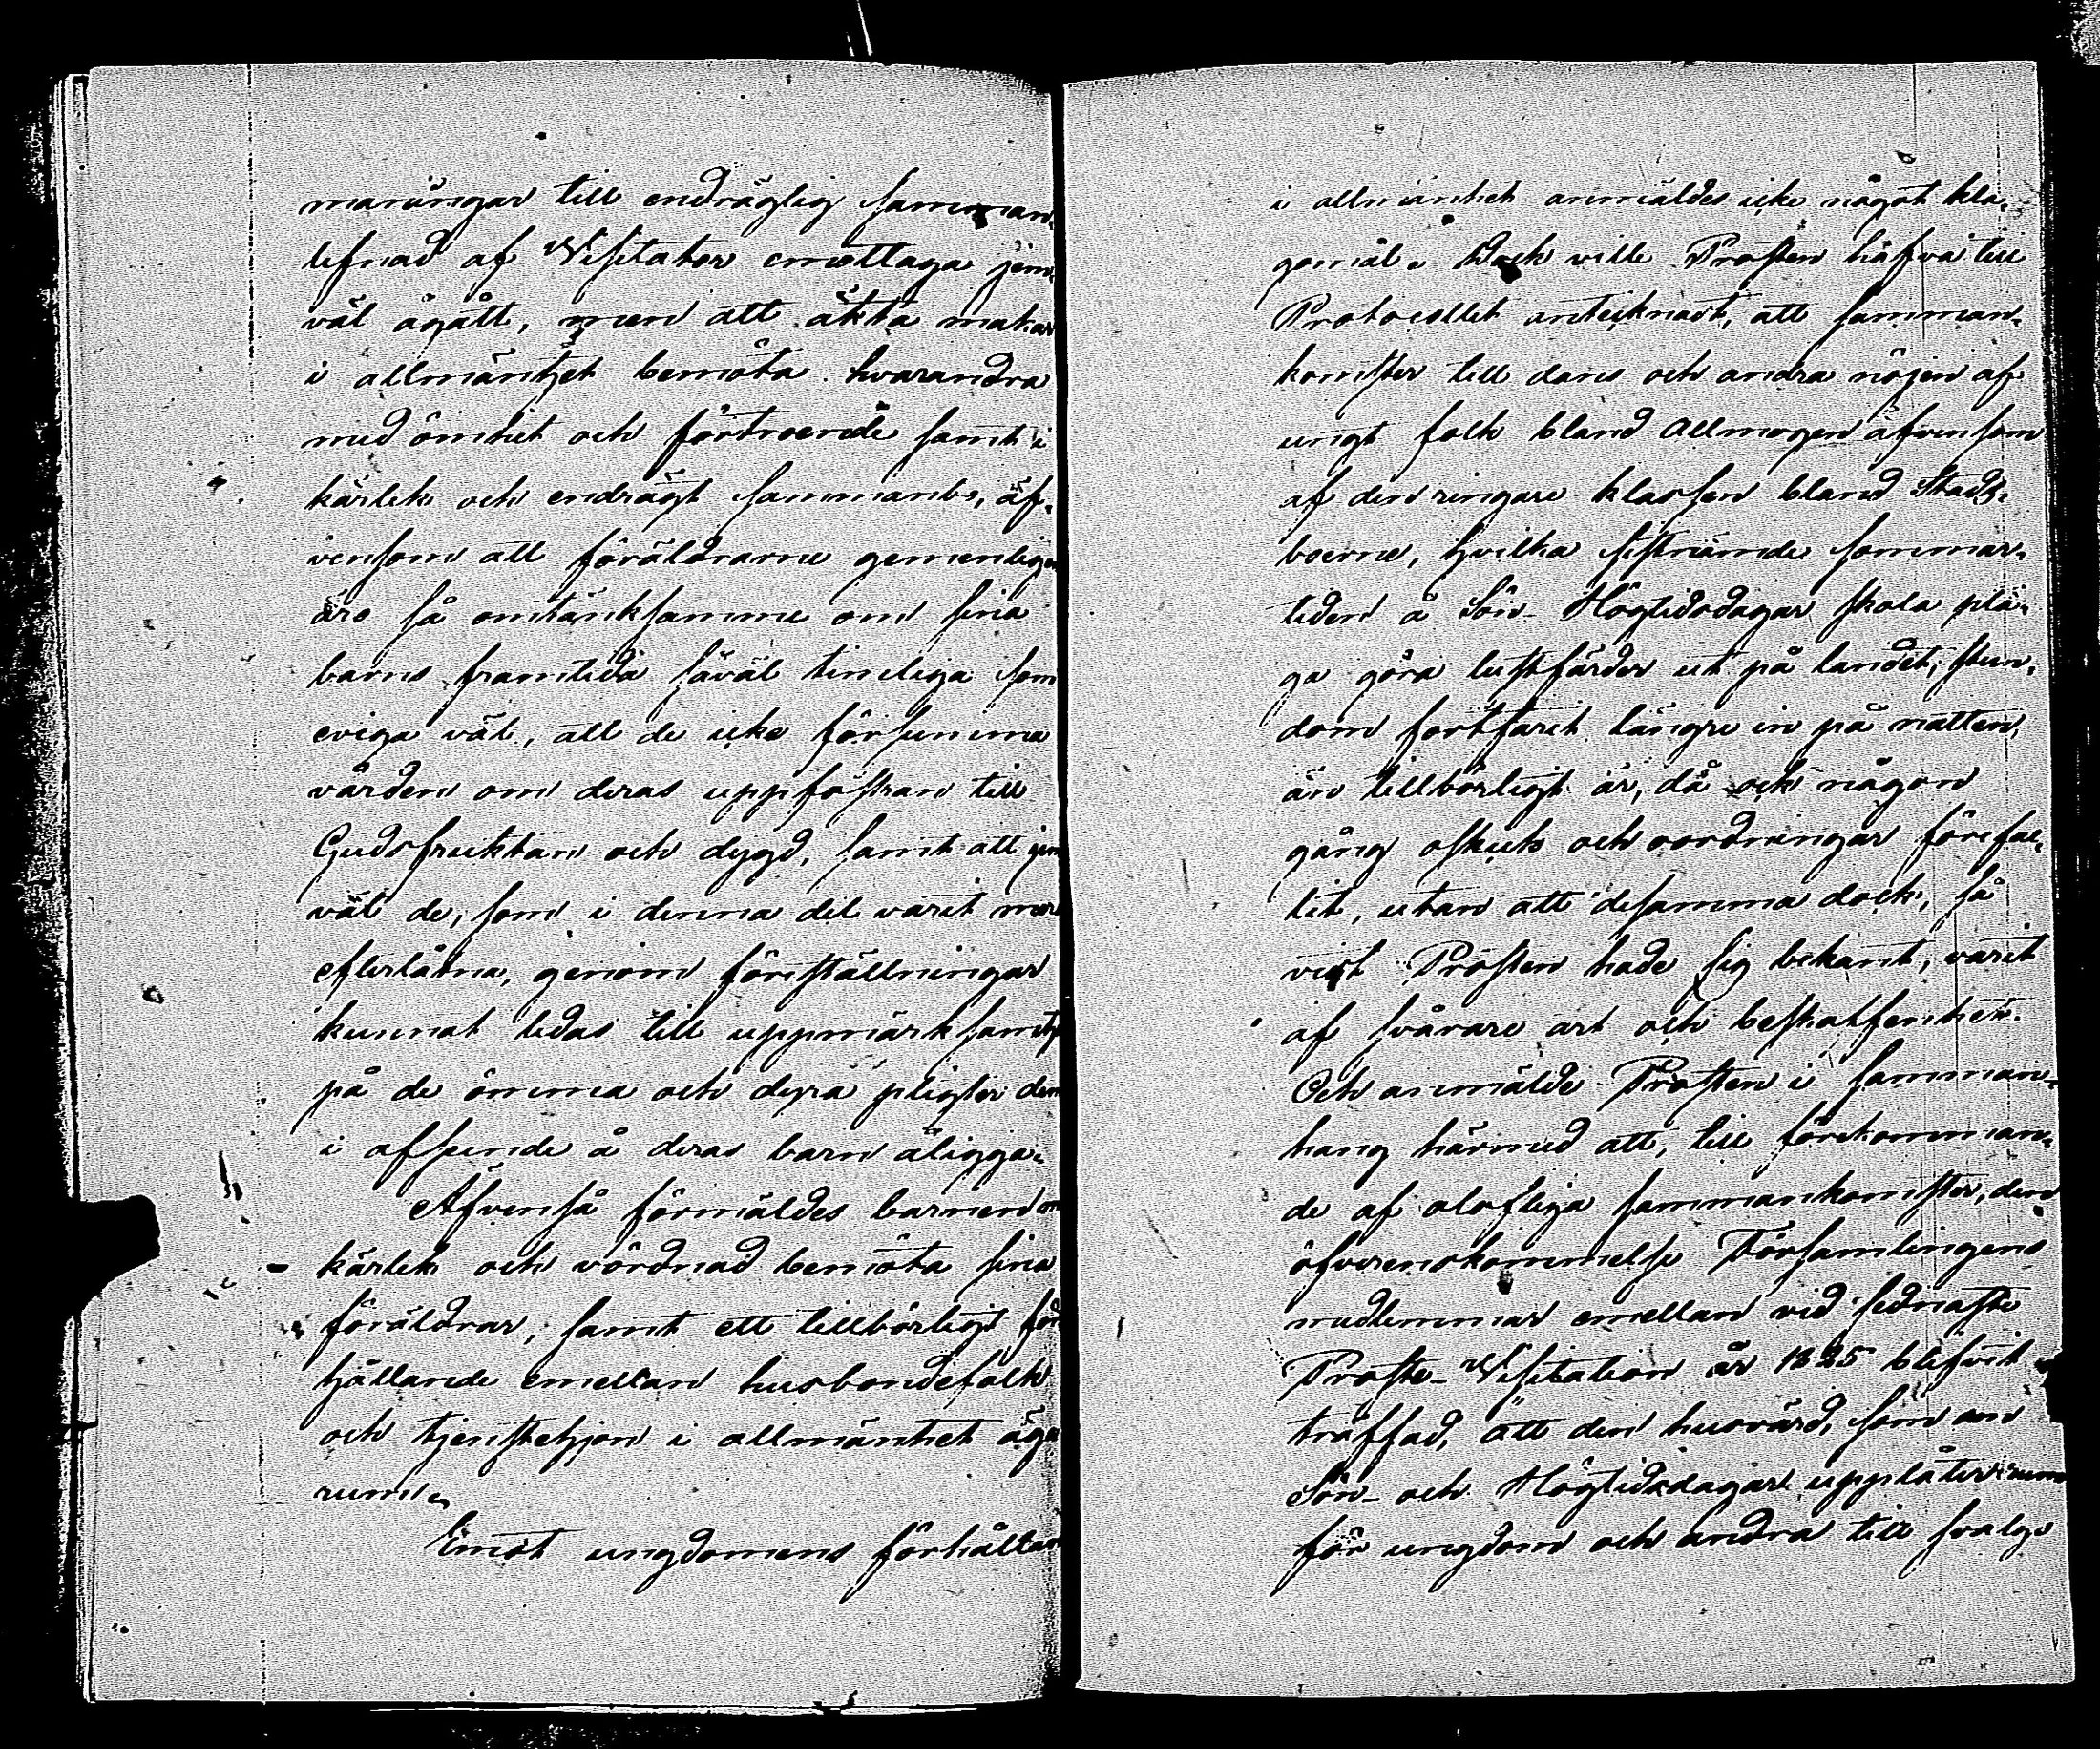 maningar till endräglig samman-
lefnad af Visitator emottaga jem-
väl ägått, men att äkta makar
i allmänhet bemöta hvarandra
med ömhet och förtroende samt i
kärlek och endrägt sammanbo, äf-
vensom att föräldrarne gemenligen
äro så omtänksamme om sina
barns framtida såväl timeliga som
eviga väl, att de icke försumma
vården om deras uppfostran till
Gudsfruktan och dygd, samt att jem
väl de, som i denna del varit mer
efterlåtna, genom föreställningar
kunnat ledas till uppmärksamhet
på de ömma och dyra pligter dem
i afseende å deras barn åligga.
Äfvenså förmäldes barnen
kärlek och vördnad bemöta sina
föräldrar, samt ett tillbörligt för
hållande emellan husbondefolk
och tjenstehjon i allmänhet äga
rum.
Emot ungdomens förhållan
i allmänhet anmäldes icke något kla-
gomål. Dock ville Prosten hafva till
Protocollet antecknadt, att samman-
komster till dans och andra nöjen af
ungt folk bland Allmogen äfvensom
af den ringare klassen bland Stads-
boerne, hvilka sistnämde sommar-
tiden å Sön- Högtidsdagar skola plä-
ga göra lustfärder ut på landet, stun-
dom fortfarit längre in på natten,
än tillbörligt är, då och någon
gång oskick och oordningar förefal-
lit, utan att desamma dock, så
vidt Prosten hade sig bekant, varit
af svårare art och beskaffenhet.
Och anmälde Prosten i samman-
hang härmed att, till förekomman-
de af olofliga sammankomster, den
öfverenskommelse Församlingens
medlemmar emellan vid sednaste
Proste-Visitation år 1825 blifvit
träffad, att den husvärd, som om
Sön- och Högtidsdagar upplåter rum
för ungdom och andra till svalg